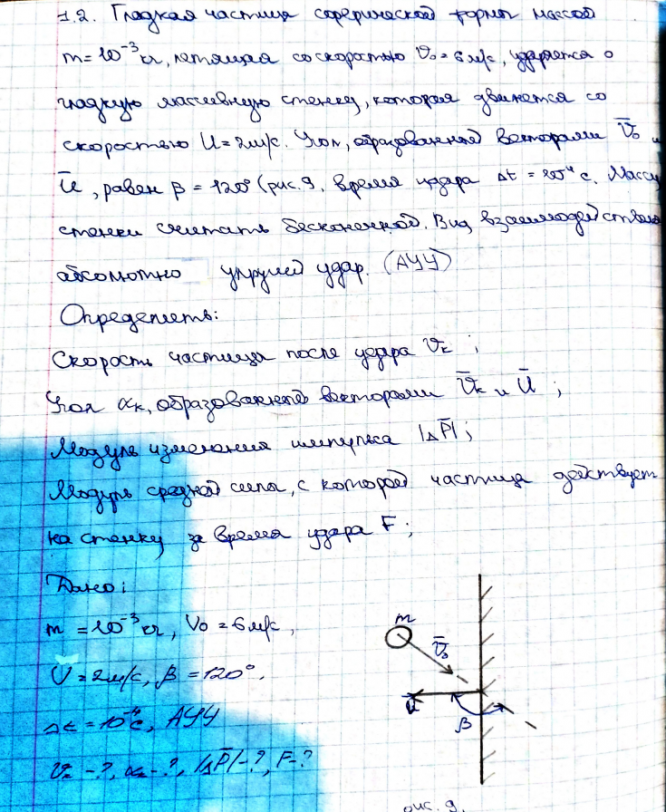 1.2. Гладкая частица сферической формы массой
m = 10⁻³ кг, летящая со скоростью V₀ = 6 м/с, ударяется о
гладкую массивную стенку, которая движется со
скоростью U = 2 м/с. Угол, образованный векторами V̄₀ и
Ū, равен β = 120° (рис. 9. Время удара Δt = 10⁻⁴ с. Массу
стенки считать бесконечной. Вид взаимодействия
абсолютно упругий удар. (АУУ)
Определить:
Скорость частица после удара Vк ;
Угол αк, образованный векторами V̄к и Ū ;
Модуль изменения импульса |ΔP̄| ;
Модуль средней силы, с которой частица действует
на стенку за время удара F ;
Дано:
m = 10⁻³ кг, V₀ = 6 м/с,
U = 2 м/с, β = 120°.
Δt = 10⁻⁴ с, АУУ
Vк - ?, αк - ?, |ΔP̄| - ?, F - ?
m
V̄₀
Ū
β
рис. 9.